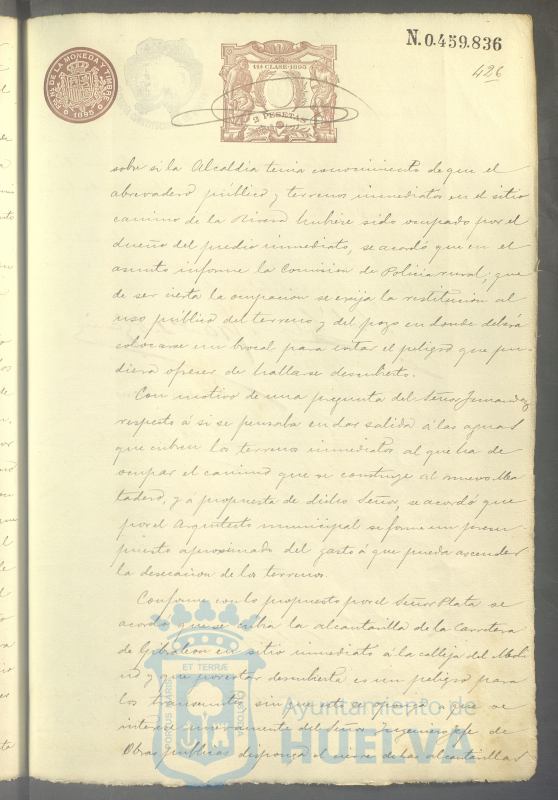 N.0.459.836
426
FCA. NAL. DE LA MONEDA Y TIMBRE
1895
11ª CLASE-1895
2 PESETAS
sobre si la Alcaldia tenia conocimiento de que el
abrevadero público y terrenos inmediatos en el sitio
camino de la Rivera hubiere sido ocupado por el
dueño del predio inmediato, se acordó que en el
asunto informe la Comision de Policia rural; que
de ser cierta la ocupacion se exija la restitucion al
uso público del terreno y del pozo en donde deberá
colocarse un brocal para evitar el peligro que pu-
diera ofrecer de hallarse descubierto.
Con motivo de una pregunta del Señor Fernandez
respecto á si se pensaba en dar salida á las aguas
que cubren los terrenos inmediatos al que ha de
ocupar el camino que se construye al nuevo Ma
tadero, y á propuesta de dicho Señor, se acordó que
por el Arquitecto municipal se forme un presu-
puesto aproximado del gasto á que pueda ascender
la desecacion de los terrenos.
Conforme con lo propuesto por el Señor Plata se
acordó que se cubra la alcantarilla de la Carretera
de Gibraleon en sitio inmediato á la calleja del Moli
no y que por estar descubierta es un peligro para
los transeuntes, sin que esto se oponga á que se
interese nuevamente del Señor Ingeniero Jefe de
Obras públicas disponga el cierre de las alcantarillas
PORTUS MARIS
ET TERRÆ
CUSTODIA
Ayuntamiento de
HUELVA